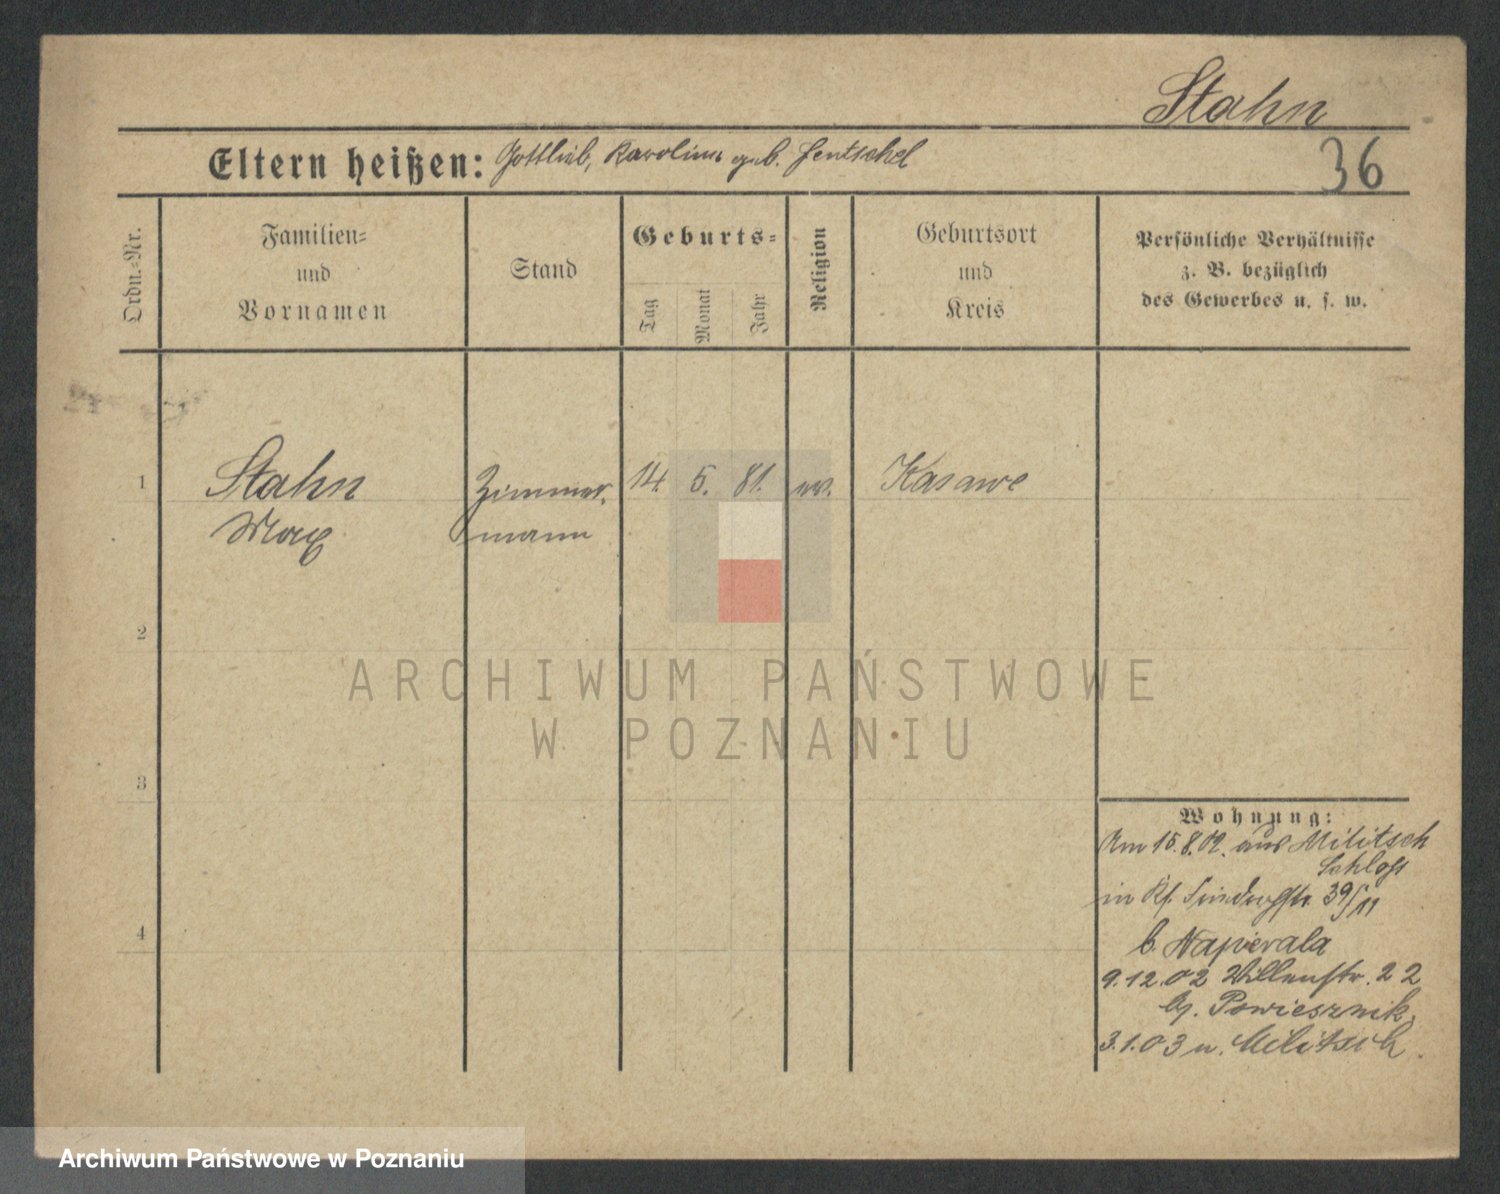 Stahn
Eltern heißen: Gottlieb, Karoline geb. Jentschel
36
Ordn.-Nr.
Familien-
und
Vornamen
Stand
Geburts-
Tag
Monat
Jahr
Religion
Geburtsort
und
Kreis
Persönliche Verhältnisse
z. B. bezüglich
des Gewerbes u. s. w.
1
Stahn
Max
Zimmer-
mann
14. 5. 81.
ev.
Kasawe
2
3
4
Wohnung:
Am 15.8.02. aus Militsch
Schloss
in 39/11
b. Napierala
9.12.02 22
b. Powiesznik
3.1.03 n. Militsch.
ARCHIWUM PAŃSTWOWE
W POZNANIU
Archiwum Państwowe w Poznaniu